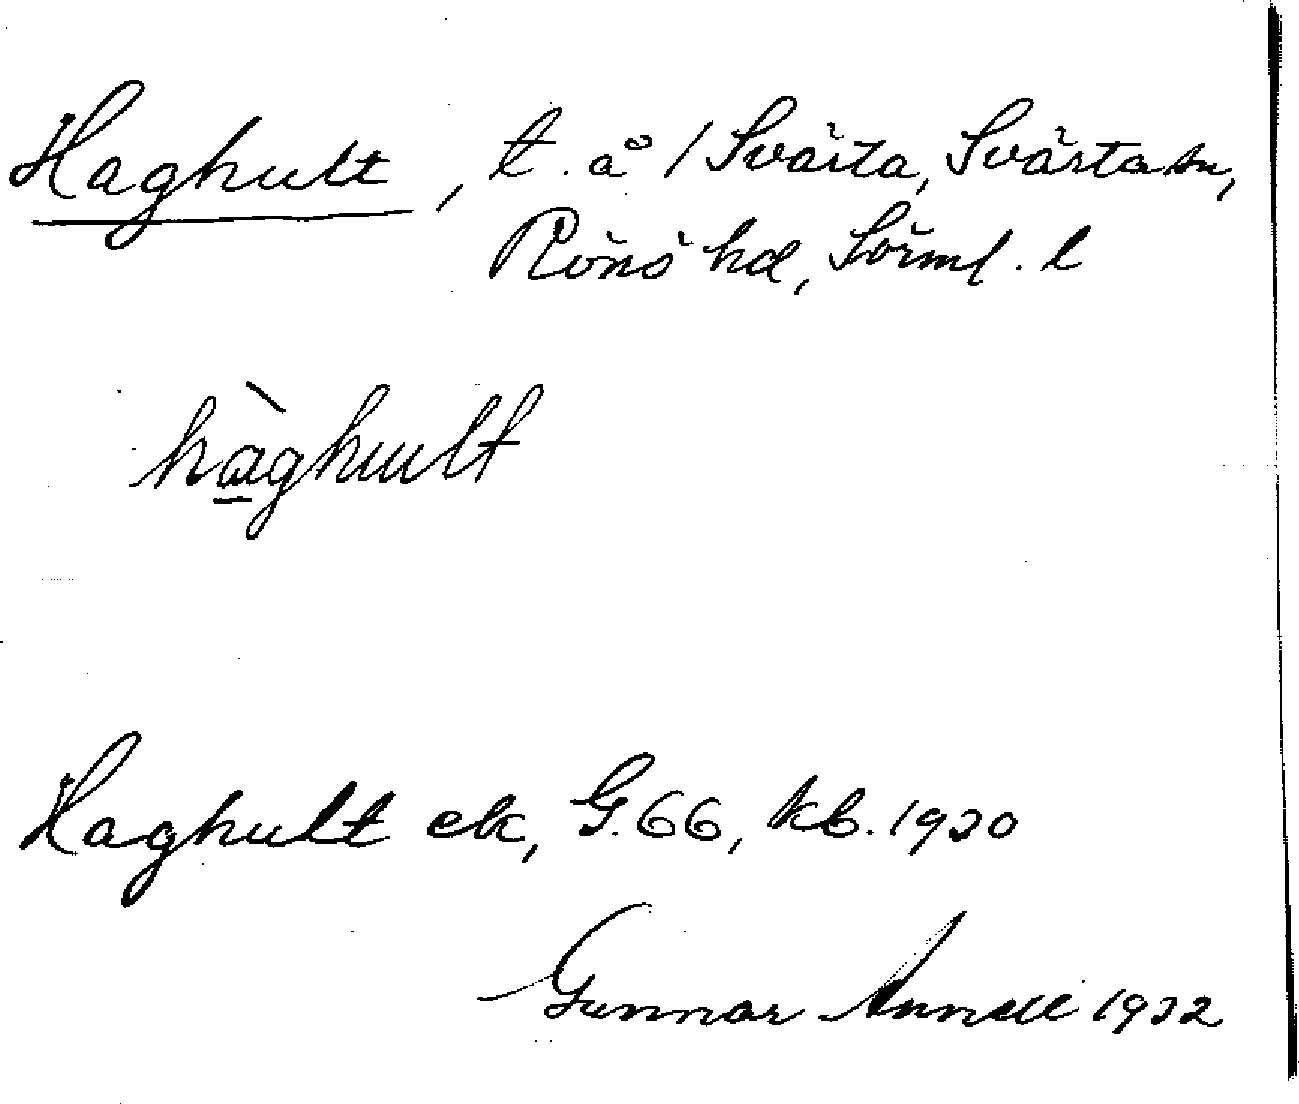 Haghult, t. å 1 Svärta, Svärta sn,
Rönö hd, Sörml. l
hàghult
Haghult ek, G. 66, kb. 1930
Gunnar Annell 1932